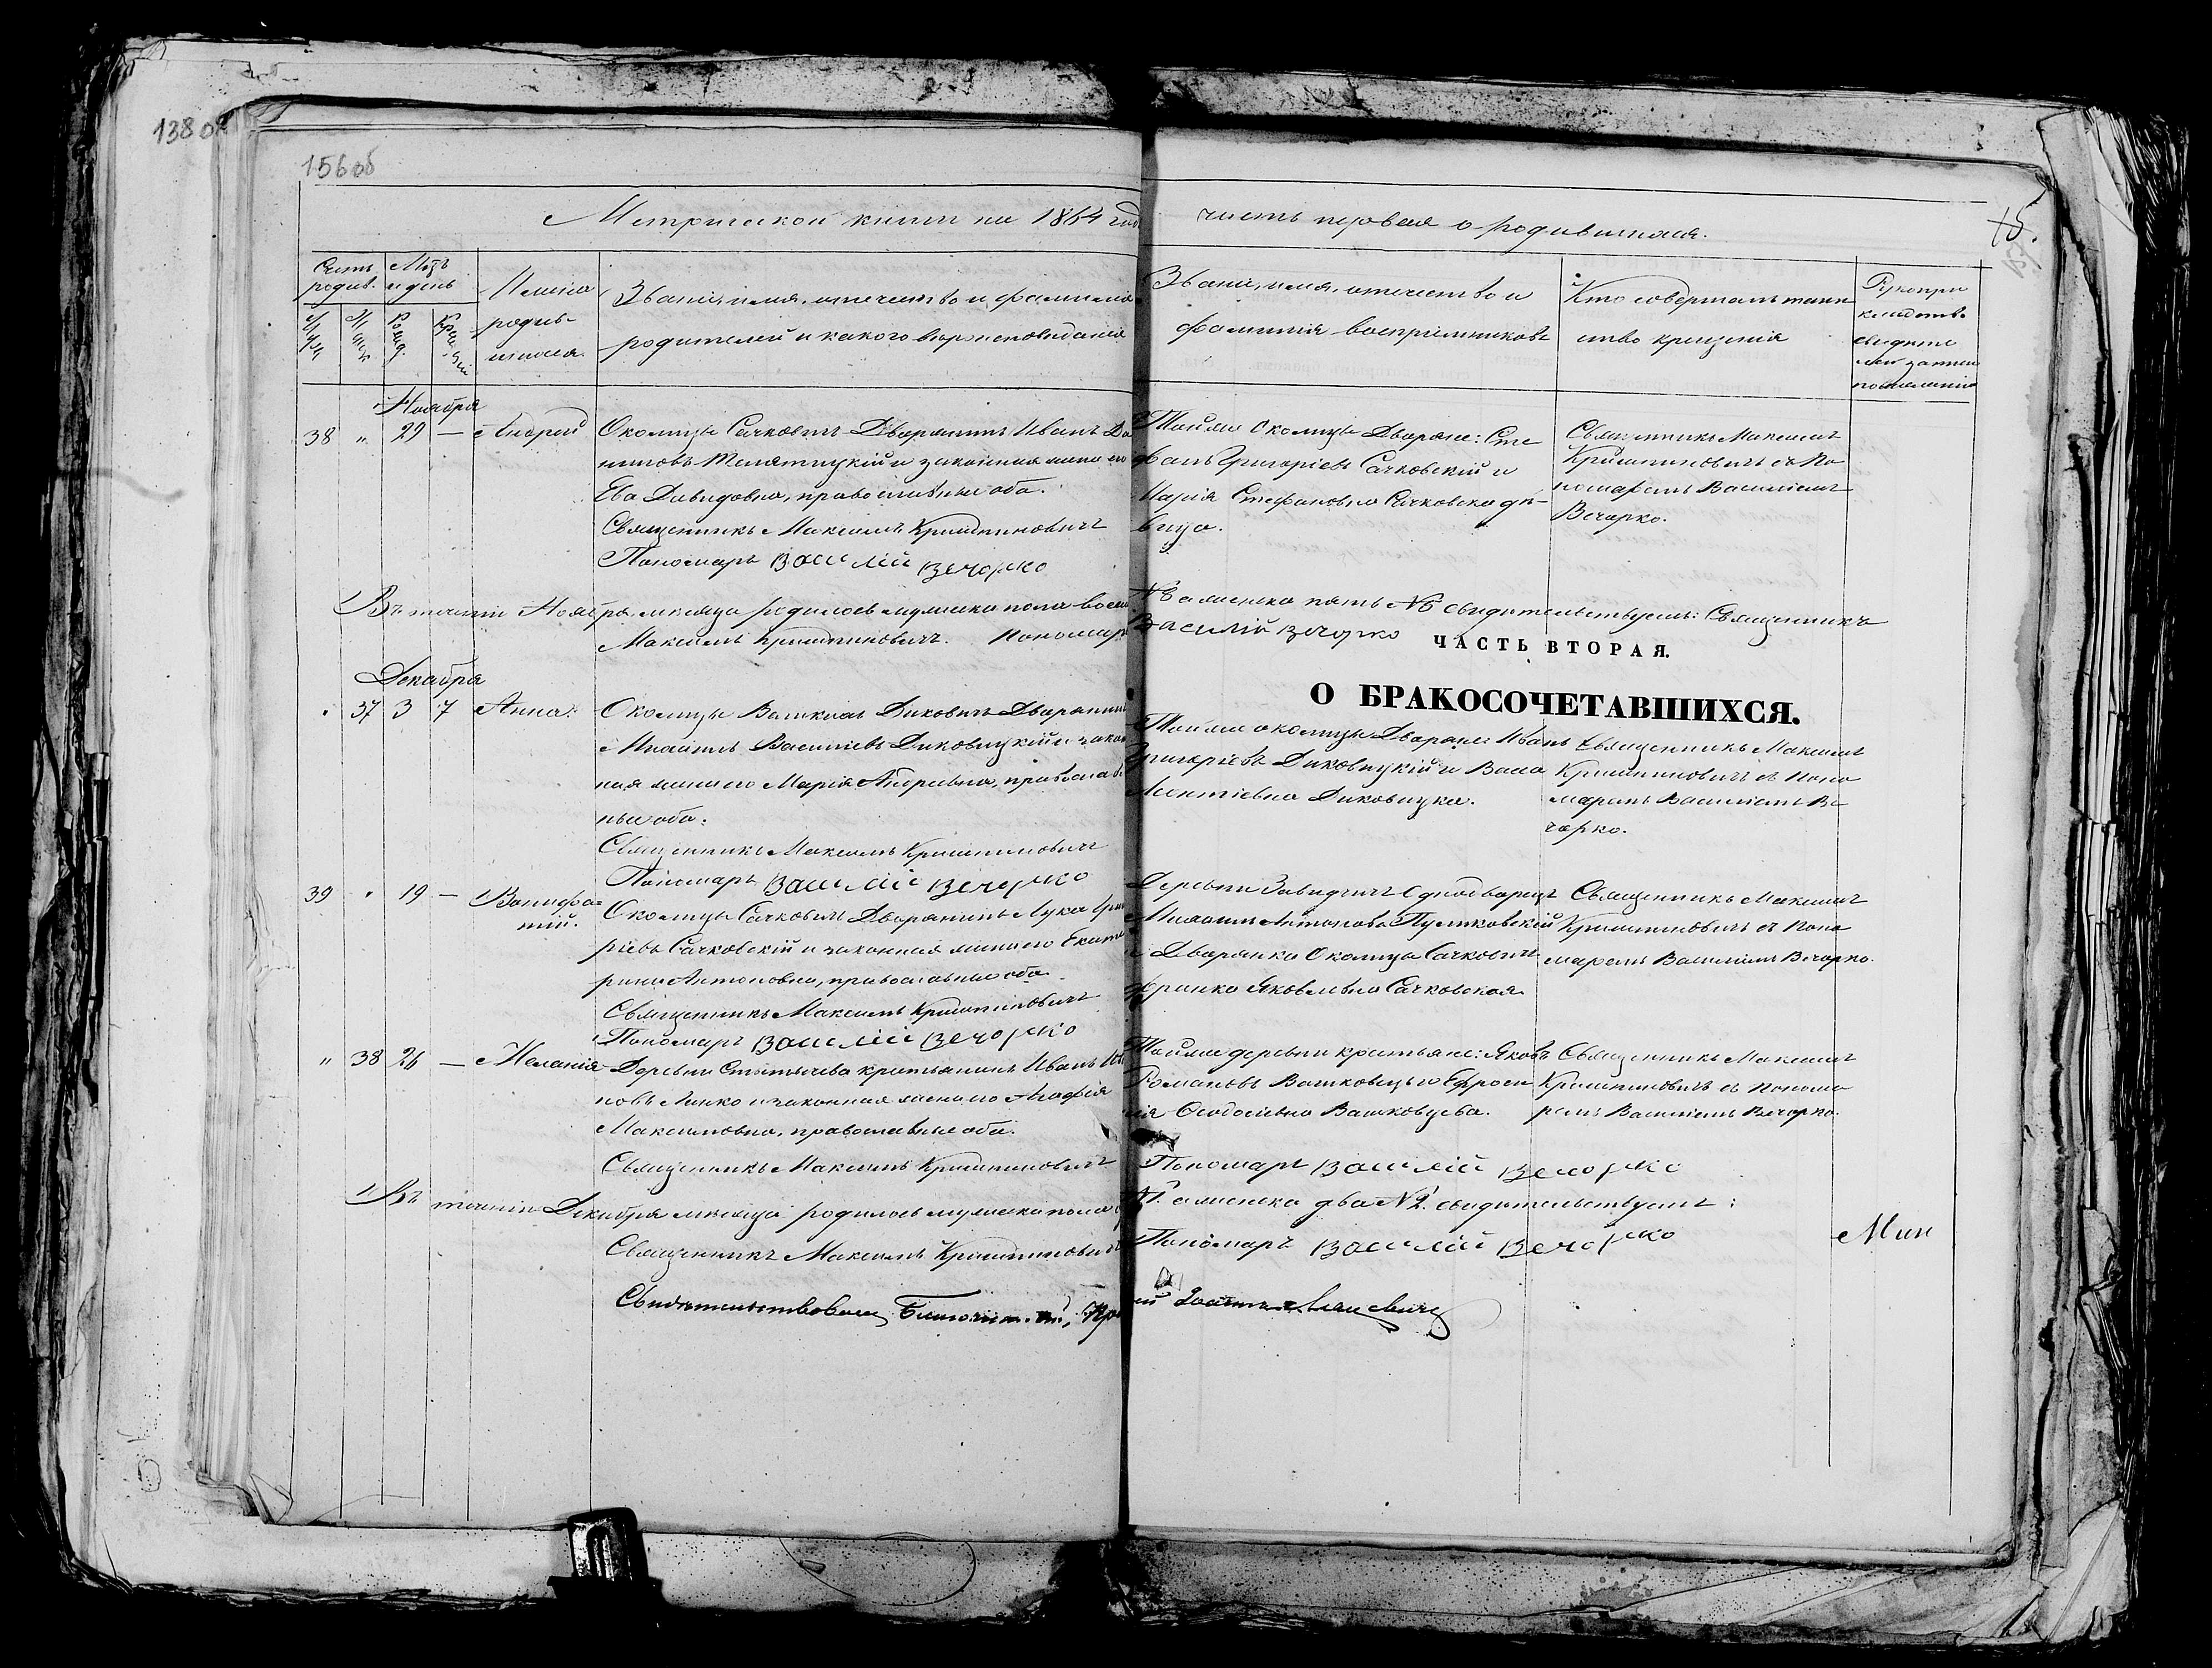 138 об
156 об
Метрической книги на 1864 год
часть первая о родившихся.
15.
Счетъ родив.
Мцъ и день
Имена родив-
шихся.
Званіе, имя, отчество и фамилія
родителей и какого вероисповеданія
Званіе, имя, отчество и
фамилія воспріемниковъ
Кто совершалъ таин
ство крещенія
Рукопри
кладство
свидете
лей записи
по желанію
Ноября
38 " 29 — Андрей
Околицы Сачковичъ Дворянинъ Иванъ Да
ниловъ Телятицкій и законная жена его
Ева Давидовна, православные оба.
Священникъ Максимъ Криштиновичъ
Пономарь Василій Вечорко
Тойже Околицы Дворяне: Сте
фанъ Григоріевъ Сачковскій и
Марія Стефановна Сачковска дѣ-
вица.
Священникъ Максимъ
Криштиновичъ съ По
номаремъ Василіемъ
Вечорко.
Въ теченіи Ноября месяца родилось мужеска пола
женска пять №5 свидетельствуемъ: Священникъ
Максимъ Криштиновичъ. Пономарь
Василій Вечорко
ЧАСТЬ ВТОРАЯ.
О БРАКОСОЧЕТАВШИХСЯ.
Декабря
37 3 7 Анна.
Околицы Дековичъ Дворянинъ
Михаилъ Василіевъ Диковицкій и закон
ная жена его Марія Андреевна, православ
ные оба.
Священникъ Максимъ Криштиновичъ
Пономарь Василій Вечорко
Тойже околицы Дворяне: Иванъ
Григоріевъ Диковицкій и
Леонтіевна Диковицка.
Священникъ Максимъ
Криштиновичъ съ Поно
маремъ Василіемъ Ве
чорко.
39 " 19 — Вонифа=
тій.
Околицы Сачковичъ Дворянинъ Лука Григо
ріевъ Сачковскій и законная жена его Екате
рина Антоновна, православные оба.
Священникъ Максимъ Криштиновичъ
Пономарь Василій Вечорко
Деревни Завидчичъ Однодворецъ
Михаилъ Антоновъ
и Дворянка Околицы Сачковичъ
Франка Яковлевна Сачковская
Священникъ Максимъ
Криштиновичъ съ Поно
маремъ Василіемъ Вечорко.
" 38 24 — Меланія
Деревни Стытычева крестьянинъ Иванъ
новъ и законная жена его Агафія
Максимовна, православные оба.
Священникъ Максимъ Криштиновичъ
Пономарь Василій Вечорко
Тойже деревни крестьяне: Яковъ
Романовъ Вашковецъ и Ефроси
нія Вашковцева.
Священникъ Максимъ
Криштиновичъ съ Понома
ремъ Василіемъ Вечорко.
Въ теченіи Декабря месяца родилось мужеска пола
женска два №2. свидетельствуемъ:
Священникъ Максимъ Криштиновичъ
Пономарь Василій Вечорко
Мин
Свидетельствовалъ